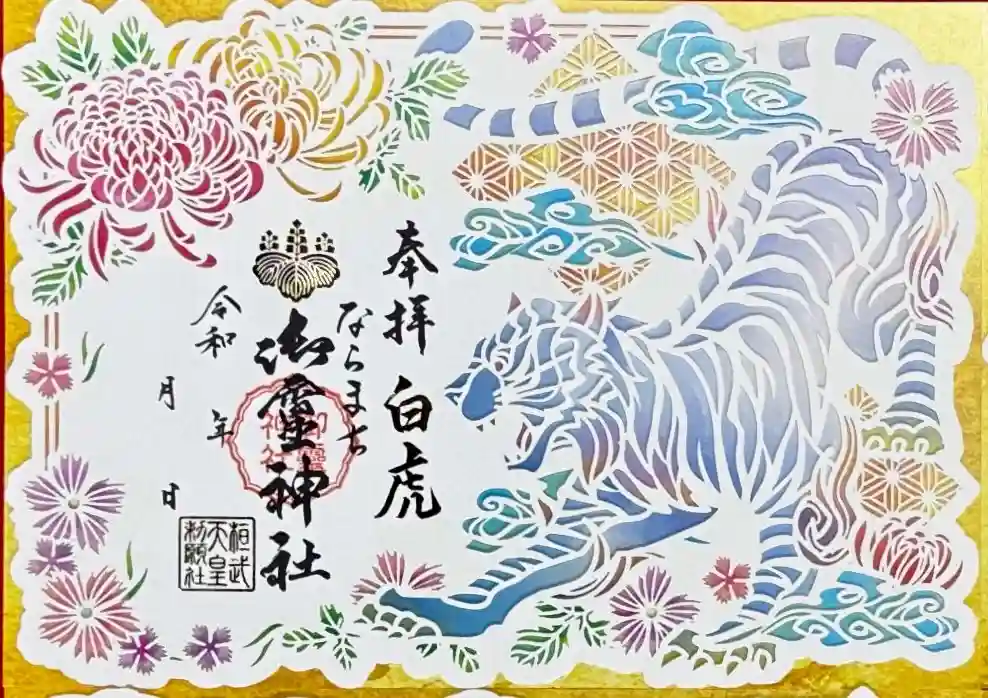 奉拝 白虎
ならまち
御靈神社
御靈神社
令和 年
月 日
桓武
天皇
勅願社